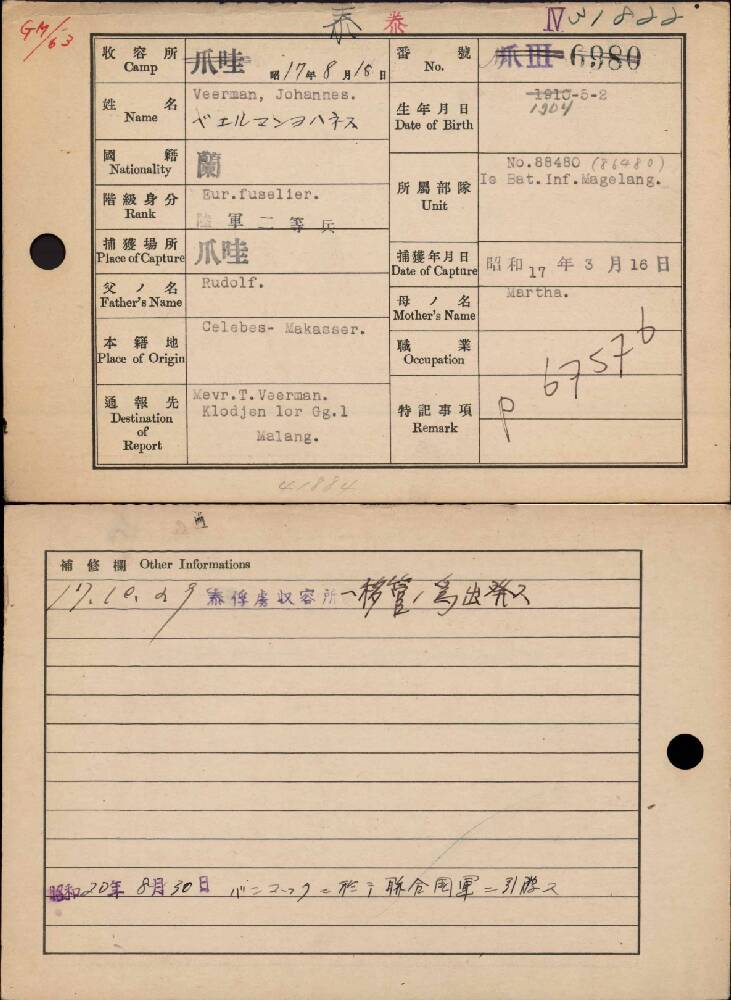 GM/63
泰 泰 IV 31822
收容所 Camp 爪哇 昭17年8月15日 番號 No. 爪III-6980
姓名 Name Veerman, Johannes. ベエルマンヨハネス
生年月日 Date of Birth 1910-5-2 1904
國籍 Nationality 蘭
所屬部隊 Unit No.88480 (86480) Ie Bat.Inf.Magelang.
階級身分 Rank Eur.fuselier. 陸軍二等兵
捕獲場所 Place of Capture 爪哇
捕獲年月日 Date of Capture 昭和17年3月16日
父ノ名 Father's Name Rudolf.
母ノ名 Mother's Name Martha.
本籍地 Place of Origin Celebes- Makasser.
職業 Occupation
通報先 Destination of Report Mevr.T.Veerman.
Klodjen lor Gg.1
Malang.
特記事項 Remark p 67576
41884
補修欄 Other Informations
17.10.29 泰俘虜収容所ヘ移管ノ爲出発ス
昭和20年8月30日 バンコックニ於テ聯合国軍ニ引渡ス